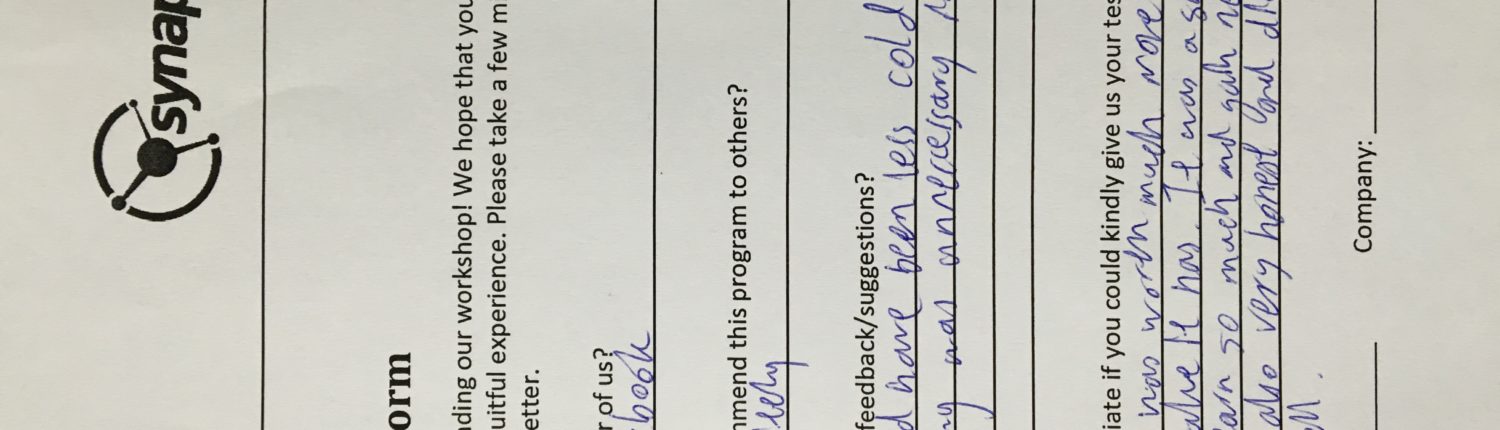 synap
orm
nding our workshop! We hope that you
uitful experience. Please take a few mi
etter.
r of us?
book
mmend this program to others?
feedback/suggestions?
d have been less cold
was unnecessary
iate if you could kindly give us your tes
was worth much more
it has. It was a
so much and gain
also very honest and
Company: